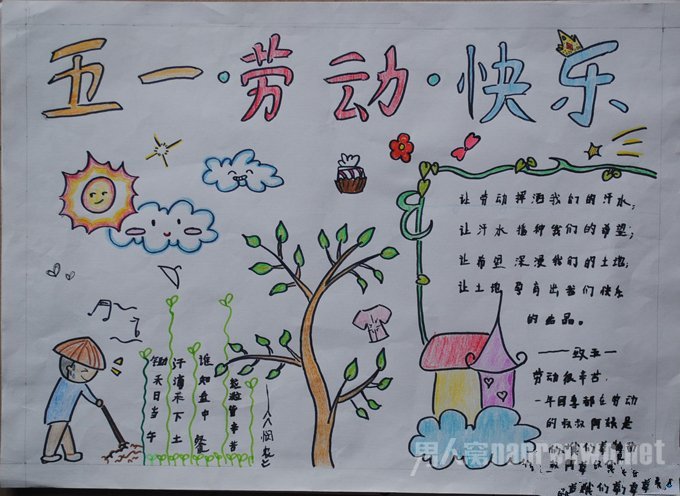 五一·劳动·快乐
让劳动挥洒我们的汗水;
让汗水播种我们的希望;
让希望深浸我们的土地;
让土地孕育出我们快乐
——致五一
劳动很辛苦,
一年四季都在劳动
的叔叔阿姨是
锄禾日当午
汗滴禾下土
谁知盘中餐
粒粒皆辛苦
——《悯农》
男人窝nanrenwo.net